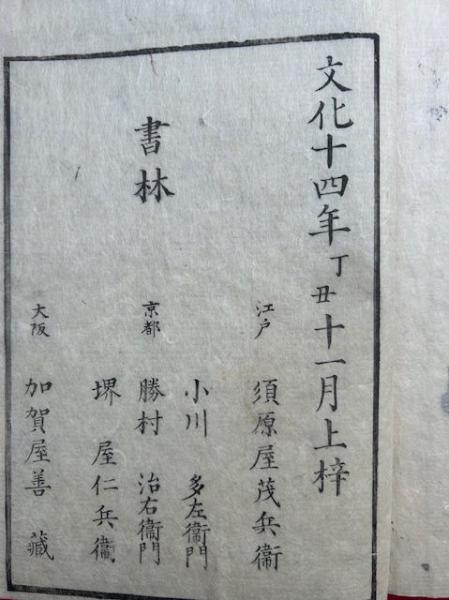 文化十四年丁丑十一月上梓
書林
江戸 須原屋茂兵衞
小川 多左衞門
京都 勝村 治右衞門
堺屋仁兵衞
大阪 加賀屋善藏